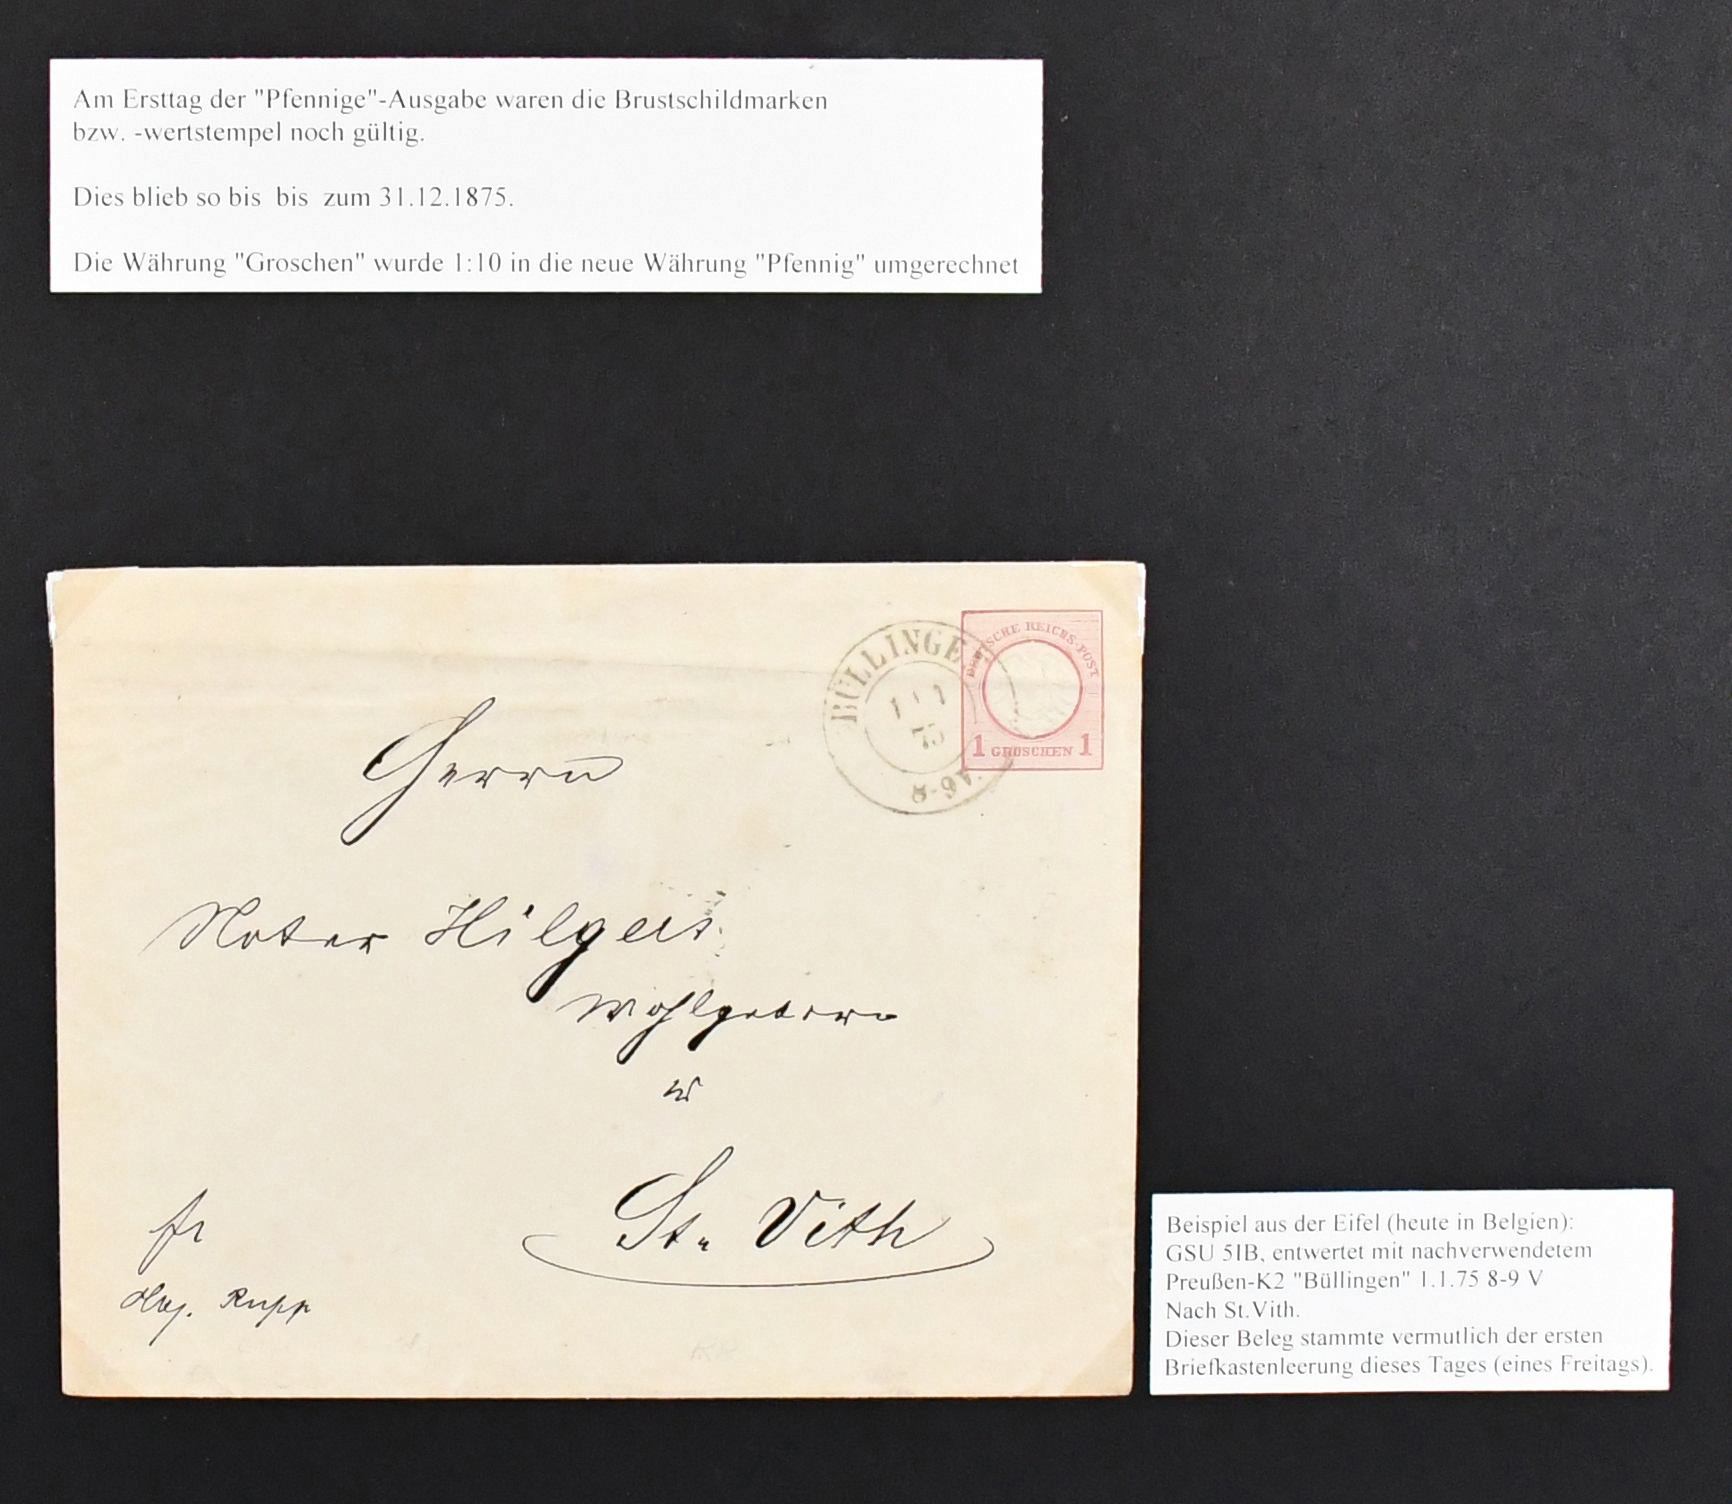 Am Ersttag der "Pfennige"-Ausgabe waren die Brustschildmarken
bzw. -wertstempel noch gültig.
Dies blieb so bis bis zum 31.12.1875.
Die Währung "Groschen" wurde 1:10 in die neue Währung "Pfennig" umgerechnet
BÜLLINGEN
1 1
75
DEUTSCHE REICHS-POST
1 GROSCHEN 1
Herrn
Notar Hilgers
Wohlgeborn
St. Vith
fr
Rupp
Beispiel aus der Eifel (heute in Belgien):
GSU 5IB, entwertet mit nachverwendetem
Preußen-K2 "Büllingen" 1.1.75 8-9 V
Nach St.Vith.
Dieser Beleg stammte vermutlich der ersten
Briefkastenleerung dieses Tages (eines Freitags).